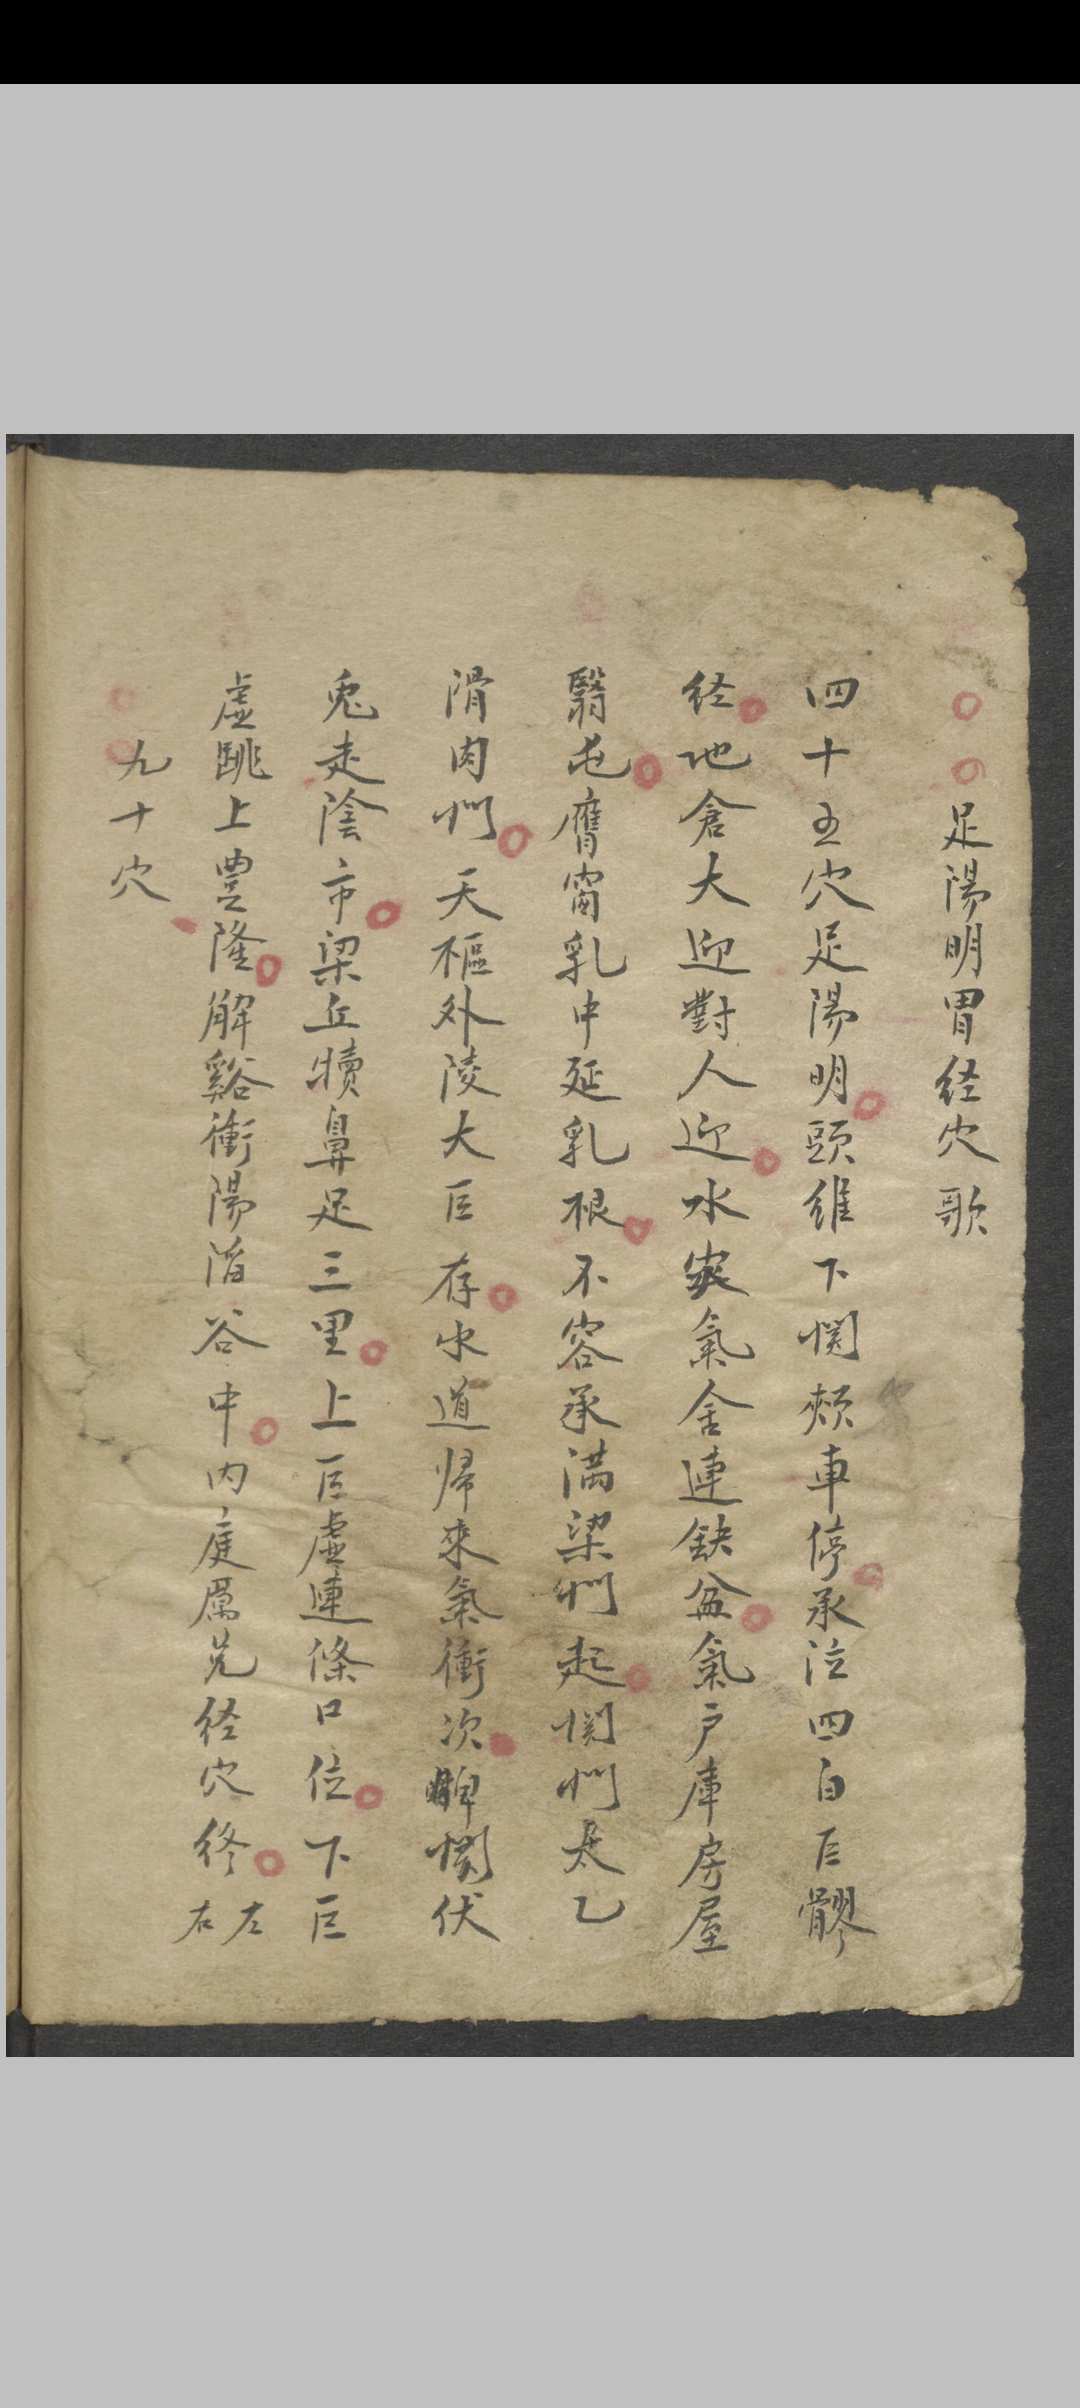 足陽明胃経穴歌
四十五穴足陽明頭維下関頰車停承泣四白巨髎
経地倉大迎對人迎水突氣舍連缺盆氣户庫房屋
翳屯膺窗乳中延乳根不容承満梁門起関門太乙
滑肉門天樞外陵大巨存水道帰來氣衝次髀関伏
兎走陰市梁丘犢鼻足三里上巨虛連條口位下巨
虛跳上豊隆解谿衝陽陷谷中内庭厲兌経穴終左右
九十穴